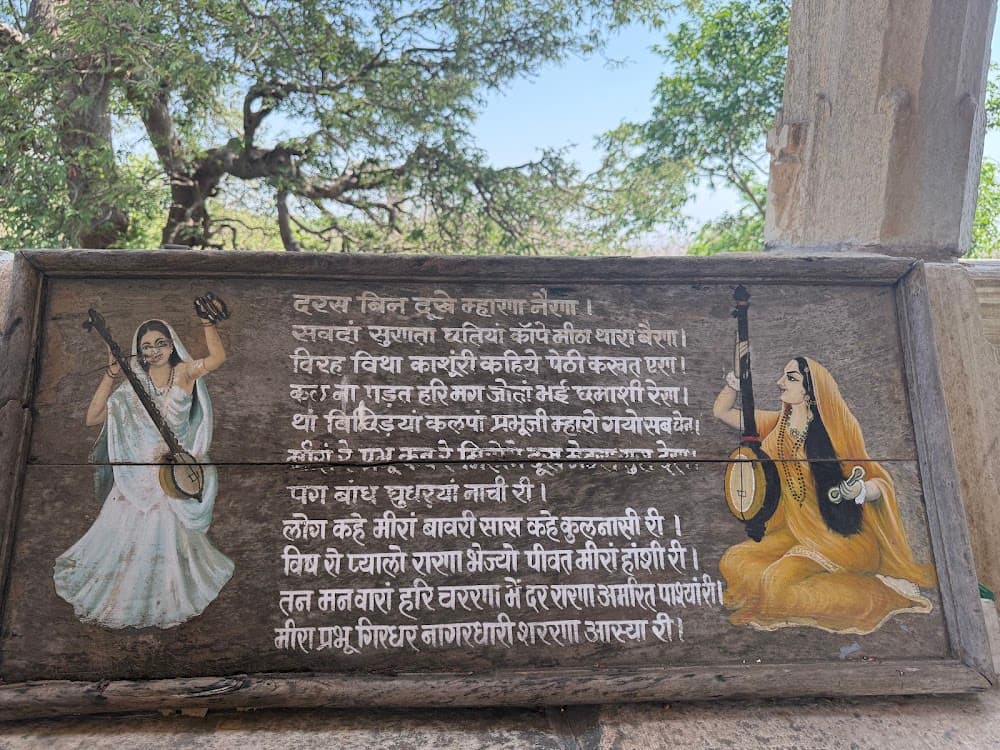 दरस बिन दूखे म्हारणा नैरणा ।
सवदां सुराता छतियां काँपे मीठा थारा बैरणा।
विरह विथा काशूंरी कहिये पेठी करवत एरणा।
कल ना पड़त हरि मग जोतां भई छमाशी रेरणा।
थां विछिड़यां कलपां प्रभूजी म्हारो गयो सब चेन।
मीरां रे प्रभू कब रे
पग बांध घुघरयां नाची री ।
लोग कहे मीरां बावरी सास कहे कुलनासी री ।
विष रो प्यालो राराणा भेज्यो पीवत मीरां हांशी री ।
तन मन वारां हरि चररणा में दरसरणा अमरित पाश्यां री।
मीरा प्रभू गिरधर नागरधारी शररणा आस्या री।